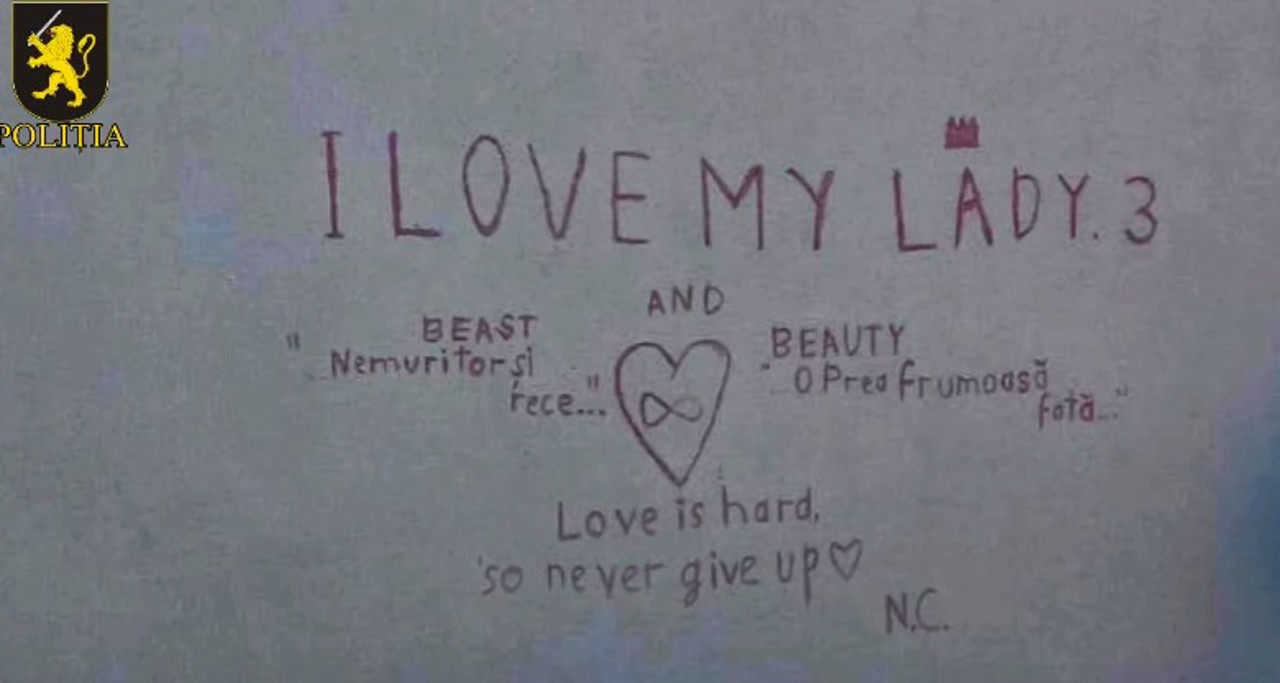 POLIȚIA
I LOVE MY LADY. 3
AND
BEAST
"Nemuritor și
rece..."
BEAUTY
"O Prea frumoasă
fată..."
Love is hard,
so never give up♡
N.C.